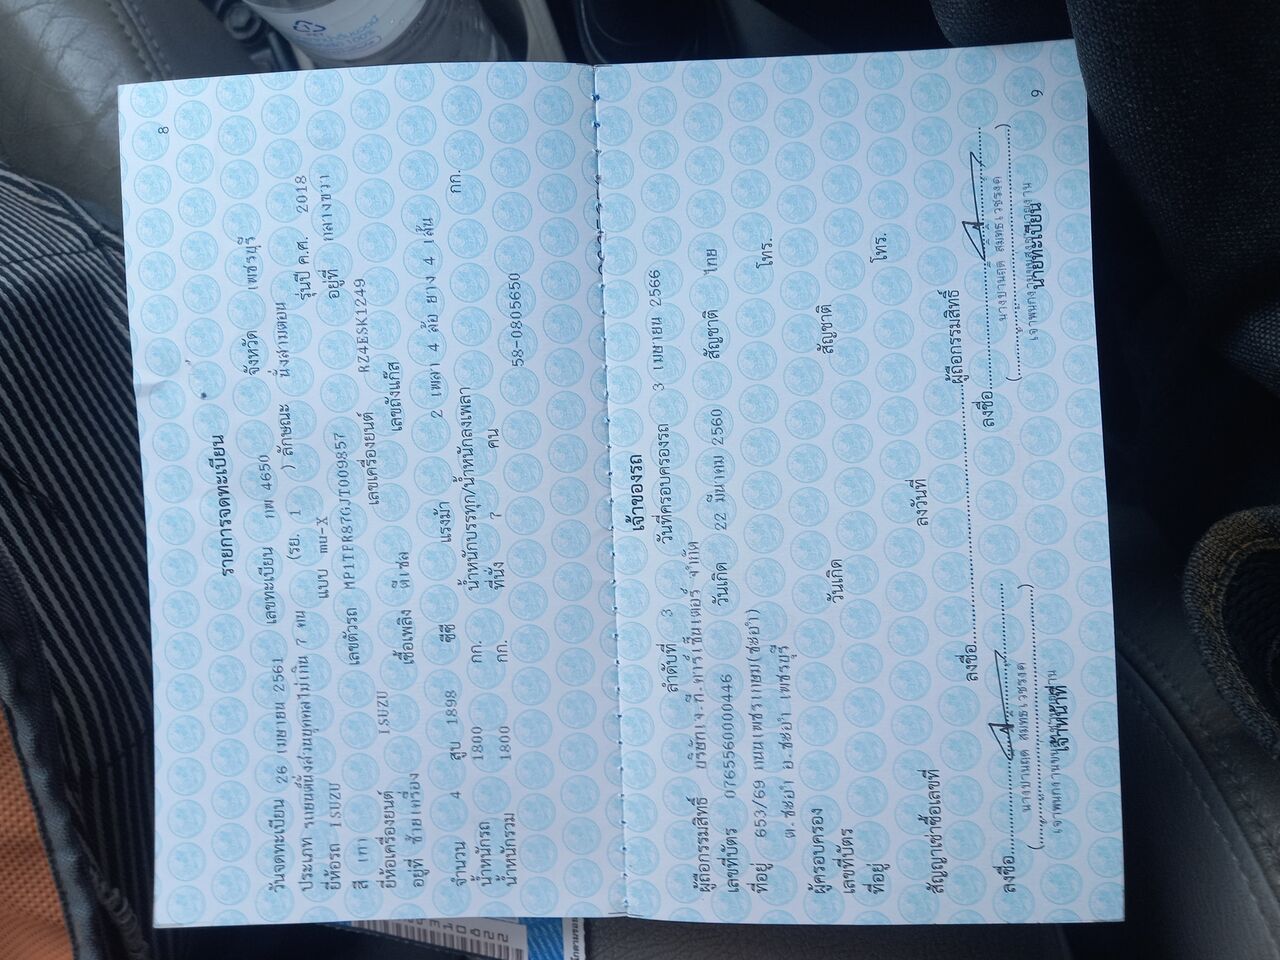 8
รายการจดทะเบียน
วันจดทะเบียน 26 เมษายน 2561 เลขทะเบียน กพ 4650 จังหวัด เพชรบุรี
ประเภท รถยนต์นั่งส่วนบุคคลไม่เกิน 7 คน (รย. 1 ) ลักษณะ นั่งสามตอน
ยี่ห้อรถ ISUZU แบบ mu-X รุ่นปี ค.ศ. 2018
สี เทา เลขตัวรถ MP1TFR87GJT009857 อยู่ที่ กลางขวา
ยี่ห้อเครื่องยนต์ ISUZU เลขเครื่องยนต์ RZ4ESK1249
อยู่ที่ ซ้ายเครื่อง เชื้อเพลิง ดีเซล เลขถังแก๊ส
จำนวน 4 สูบ 1898 ซีซี แรงม้า 2 เพลา 4 ล้อ ยาง 4 เส้น
น้ำหนักรถ 1800 กก. น้ำหนักบรรทุก/น้ำหนักลงเพลา กก.
น้ำหนักรวม 1800 กก. ที่นั่ง 7 คน 58-0805650
เจ้าของรถ
ลำดับที่ 3 วันที่ครอบครองรถ 3 เมษายน 2566
ผู้ถือกรรมสิทธิ์ บริษัทเจ.ที.คาร์เซ็นเตอร์ จำกัด
เลขที่บัตร 0765560000446 วันเกิด 22 มีนาคม 2560 สัญชาติ ไทย
ที่อยู่ 653/69 ถนนเพชรเกษม(ชะอำ) โทร.
ต.ชะอำ อ.ชะอำ เพชรบุรี
ผู้ครอบครอง
เลขที่บัตร วันเกิด สัญชาติ
ที่อยู่ โทร.
สัญญาเช่าซื้อเลขที่ ลงวันที่
ลงชื่อ ผู้ถือกรรมสิทธิ์
ลงชื่อ ลงชื่อ
เจ้าหน้าที่ นายทะเบียน
9